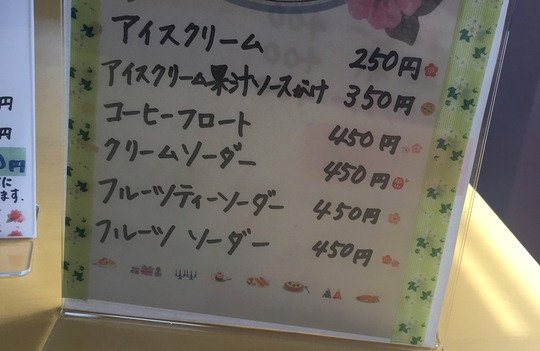 アイスクリーム 250円
アイスクリーム果汁ソースがけ 350円
コーヒーフロート 450円
クリームソーダー 450円
フルーツティーソーダー 450円
フルーツ ソーダー 450円
円
円
0円
に
ます。